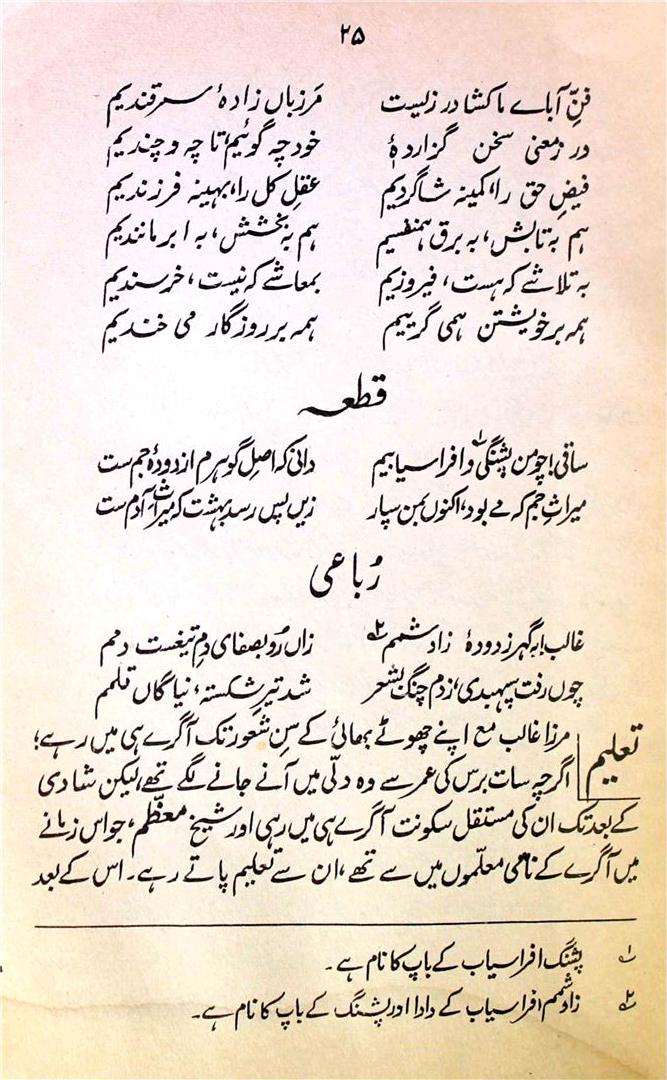 ۲۵
فنِّ آباے ما کشا در زلیست مَرزباں زادۂ سمرقندیم
در زمعنی سخن گزاردۂ خود چہ گوئیم، تا چہ و چندیم
فیضِ حق را، کمینہ شاگردیم عقلِ کل را، بہینہ فرزندیم
ہم بہ تابش، بہ برق ہمنفسیم ہم بہ بخشش، بہ ابر مانندیم
بہ تلاشے کہ ہست، فیروزیم بمعاشے کہ نیست، خرسندیم
ہمہ بر خویشتن ہمی گرییم ہمہ بر روزگار می خندیم
قطعہ
ساقی! چو من پشنگی۱ و افراسیابیم دانی کہ اصلِ گوہرم از دودۂ جم ست
میراثِ جم کہ مے بود، اکنوں بمن سپار زیں پس رسد بہشت کہ میراثِ آدم ست
رُباعی
غالب! بہ گہر ز دودۂ زادشمم۲ زاں رُو بصفای دمِ تیغست دمم
چوں رفت سپہبدی، زدم چنگ بشعر شد تیرِ شکستہ، نیا گاں قلمم
تعلیم مرزا غالب مع اپنے چھوٹے بھائی کے سِن شعور تک آگرے ہی میں رہے؛
اگرچہ سات برس کی عمر سے وہ دلّی میں آنے جانے لگے تھے، لیکن شادی
کے بعد تک ان کی مستقل سکونت آگرے ہی میں رہی اور شیخ معظّم، جو اس زمانے
میں آگرے کے نامی معلّموں میں سے تھے، ان سے تعلیم پاتے رہے۔ اس کے بعد
۱ پشنگ افراسیاب کے باپ کا نام ہے۔
۲ زادشمم افراسیاب کے دادا اور پشنگ کے باپ کا نام ہے۔